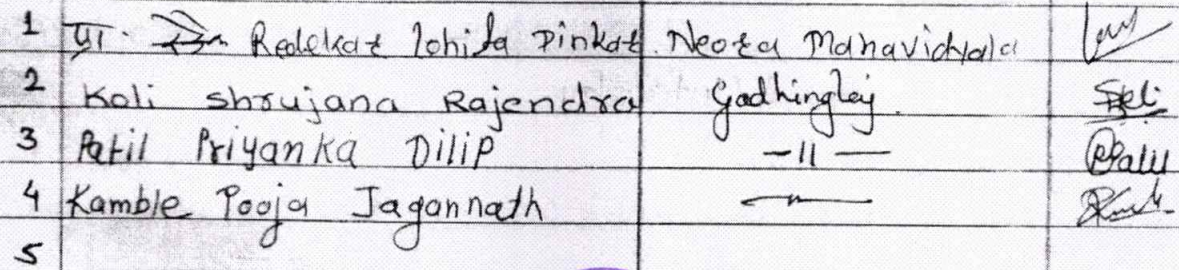 1 प्रा. Redekar Rohita Dinkar Neora Mahavidyala
2 Koli Shrujana Rajendra Gadhinglaj.
3 Patil Priyanka Dilip -11-
4 Kamble Pooja Jagannath -"-
5